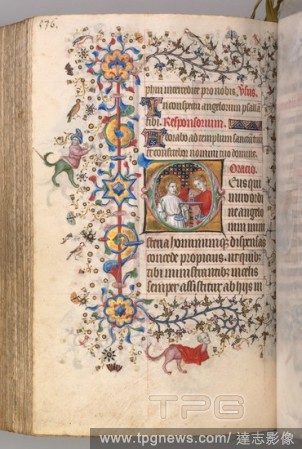 276.
plum intercedite pro nobis. Vsus.
In conspectu angelorum psallā
tibi. Responsorium.
Adorabo ad templum sanctū tuū
et confitebor nomini tuo domine.
Oratio.
Deus qui
miro ordi
ne angelo
rum mini
steria hominumq; dispensas
concede propicius. ut quib;
tibi ministrantib; in celis
semper assistitur ab hijs in
TPG
www.tpgnews.com/達志影像